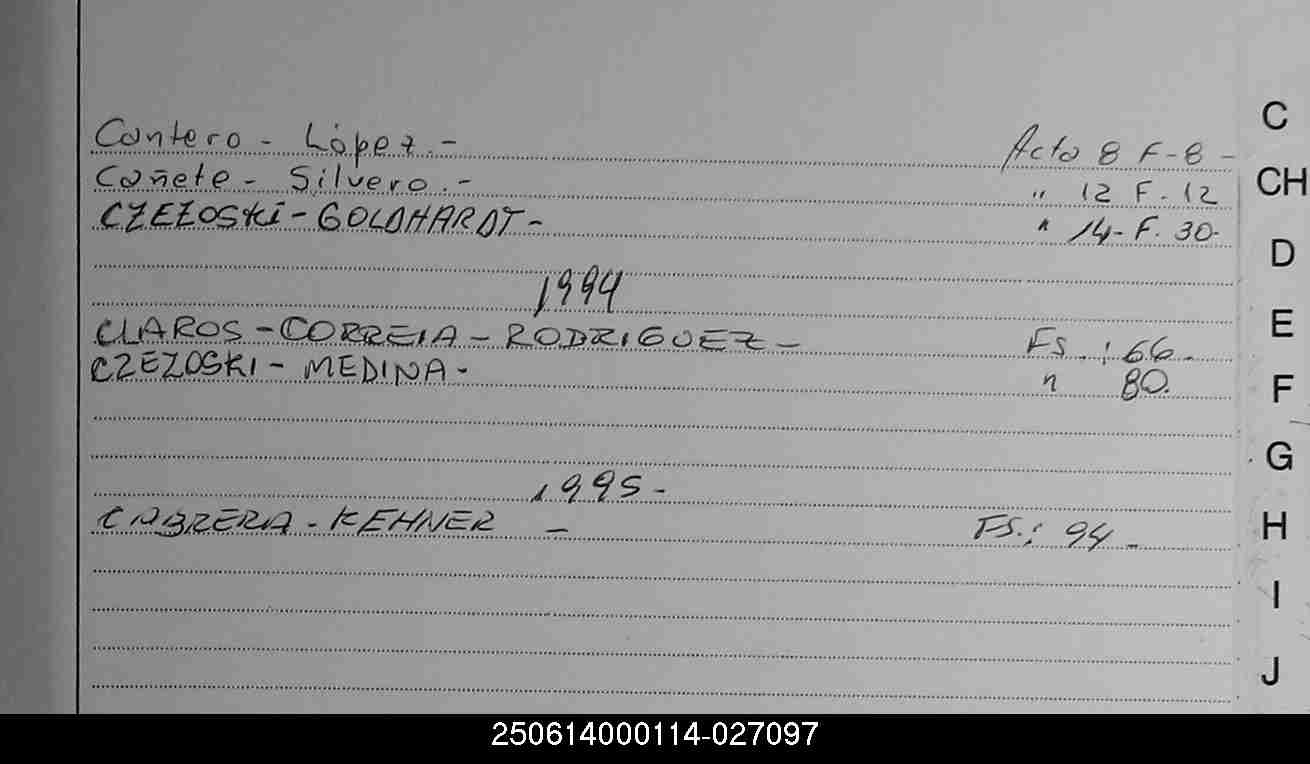 Cantero - López.- Acta 8 F-8 -
Cañete - Silvero.- " 12 F. 12
CZEZOSKi - GOLDHARDT - " 14 - F. 30-
1994
CLAROS - CORREIA - RODRIGUEZ - Fs. : 66 -
CZEZOSKI - MEDINA - " 80.
1995 -
CABRERA - KEHNER - FS.: 94 -
C
CH
D
E
F
G
H
I
J
250614000114-027097